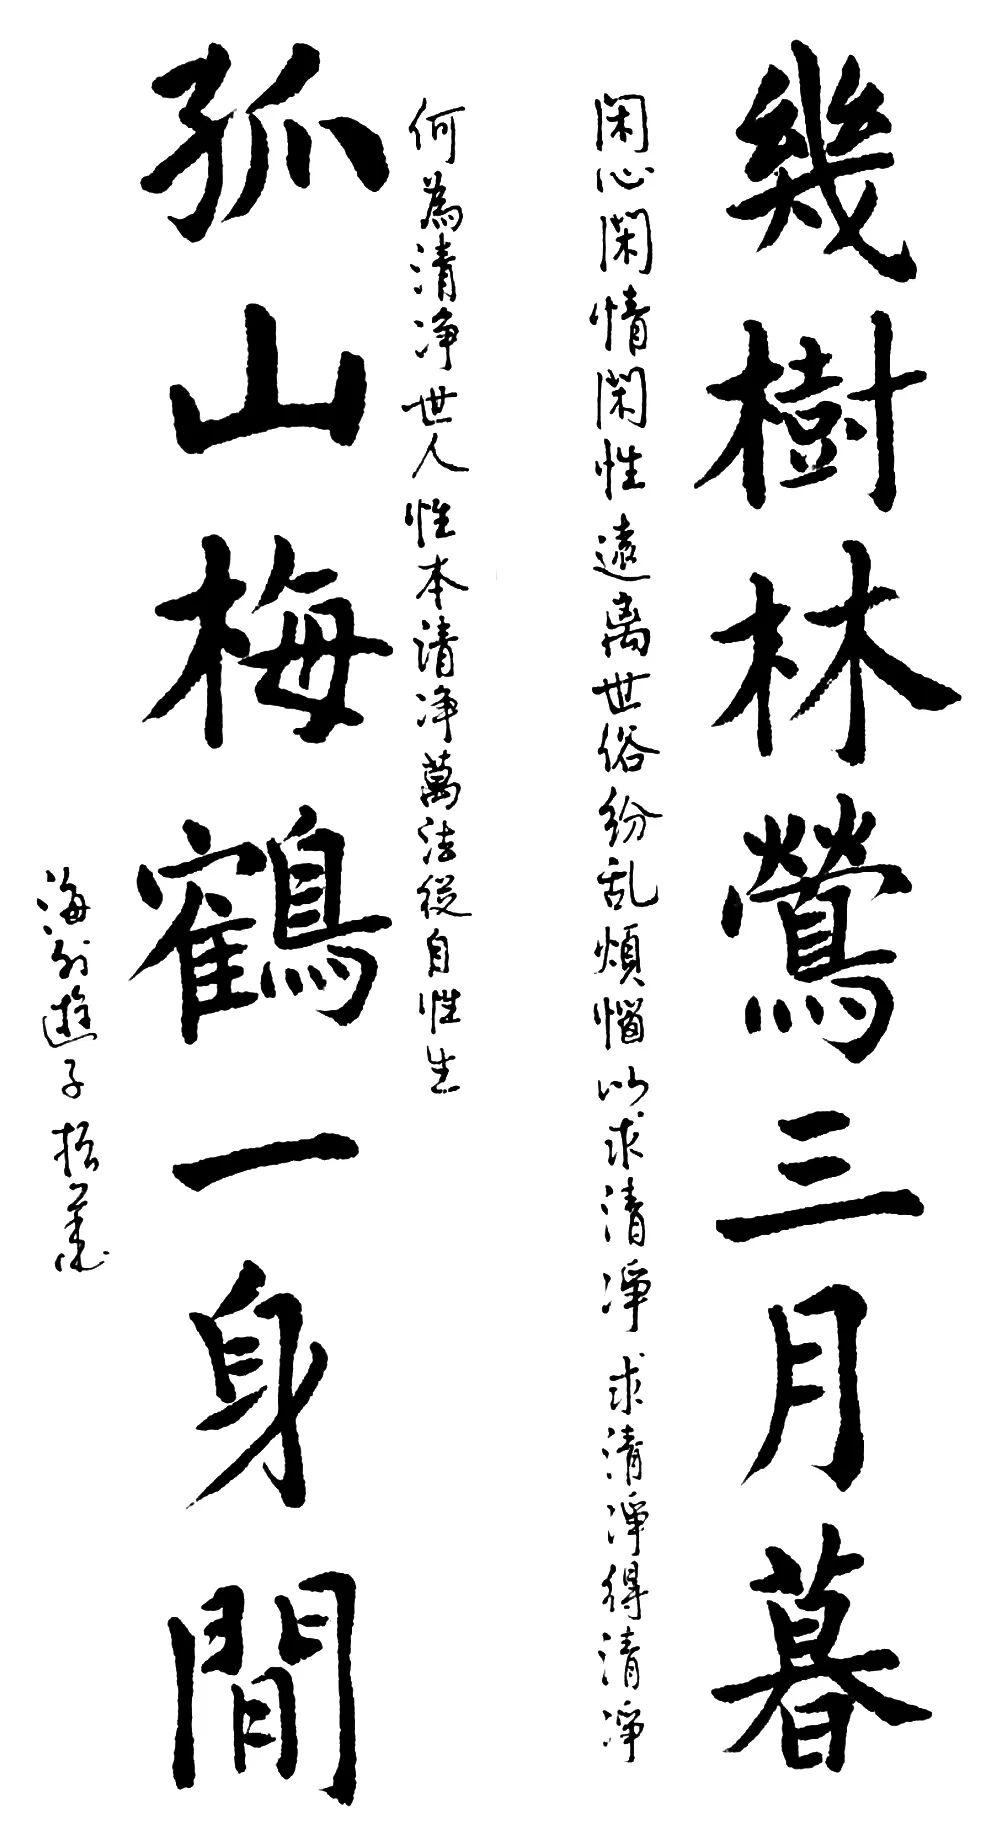 幾樹林鶯三月暮
閑心閑情閑性遠离世俗紛乱煩惱以求清凈求清凈得清凈
何為清净世人性本清净萬法從自性生
孤山梅鶴一身間
海外遊子